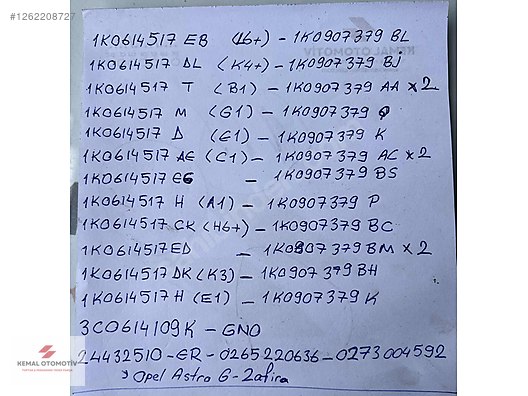 #1262208727
KEMAL OTOMOTİV
1K0614517 EB (L6+) - 1K0907379 BL
1K0614517 DL (K4+) - 1K0907379 Bj
1K0614517 T (B1) - 1K0907379 AA x2
1K0614517 M (G1) - 1K0907379 Q
1K0614517 D (E1) - 1K0907379 K
1K0614517 AE (C1) - 1K0907379 AC x2
1K0614517 EG - 1K0907379 BS
1K0614517 H (A1) - 1K0907379 P
1K0614517 CK (H6+) - 1K0907379 BC
1K0614517 ED - 1K0907379 BM x2
1K0614517 DK (K3) - 1K0907379 BH
1K0614517 H (E1) - 1K0907379 K
3C0614109K - GNO
24432510 - GR - 0265220636 - 0273004592
Opel Astra G - Zafira
KEMAL OTOMOTİV